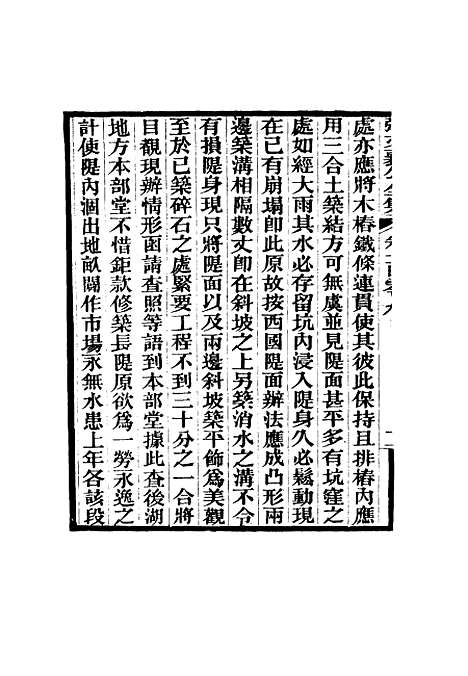 處亦應將木樁鐵條連貫使其彼此保持且排樁內應
用三合土築結方可無虞並見隄面甚平多有坑窪之
處如經大雨其水必存留坑內浸入隄身久必鬆動現
在已有崩塌卽此原故按西國隄面辦法應成凸形兩
邊築溝相隔數丈卽在斜坡之上另築消水之溝不令
有損隄身現只將隄面以及兩邊斜坡築平飾爲美觀
至於已築碎石之處緊要工程不到三十分之一合將
目覩現辦情形函請查照等語到本部堂據此查後湖
地方本部堂不惜鉅款修築長隄原欲爲一勞永逸之
計使隄內涸出地畝闢作市場永無水患上年各該段